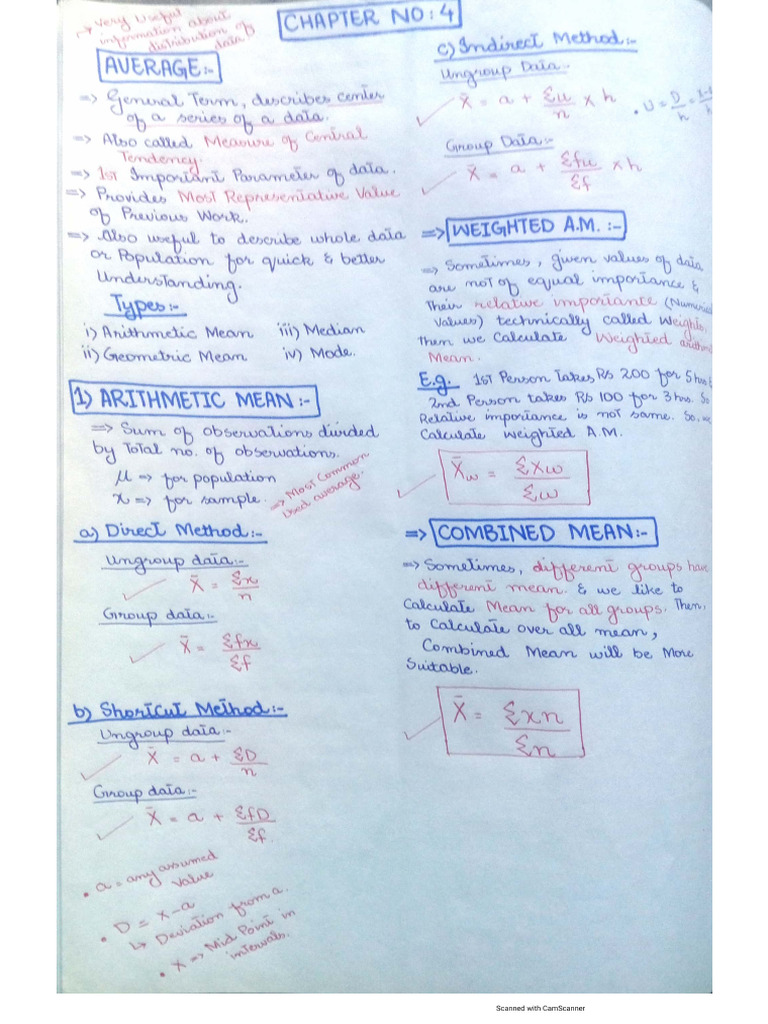 CHAPTER NO: 4
→ Very Useful
information about
distribution of
data
AVERAGE:-
⇒ General Term, describes center
of a series of a data.
⇒ Also called Measure of Central
Tendency.
⇒ 1st Important Parameter of data.
⇒ Provides Most Representative Value
of Previous Work.
⇒ Also useful to describe whole data
or Population for quick & better
Understanding.
Types:-
i) Arithmetic Mean iii) Median
ii) Geometric Mean iv) Mode.
1) ARITHMETIC MEAN:-
⇒ Sum of observations divided
by Total no. of observations.
μ ⇒ for population
x ⇒ for sample.
⇒ Most Common
Used average.
a) Direct Method:-
Ungroup data:-
X̄ = Σx/n
Group data:-
X̄ = Σfx/Σf
b) Shortcut Method:-
Ungroup data:-
X̄ = a + ΣD/n
Group data:-
X̄ = a + ΣfD/Σf
• a = any assumed
Value
• D = X-a
↳ Deviation from a.
• X ⇒ Mid Point in
intervals.
c) Indirect Method:-
Ungroup Data:-
X̄ = a + Σu/n × h
• U = D/h =
Group Data:-
X̄ = a + Σfu/Σf × h
⇒ WEIGHTED A.M.:-
⇒ Sometimes, given values of data
are not of equal importance &
Their relative importance (Numerical
Values) technically called Weights.
Then we Calculate Weighted arithm
Mean.
E.g. 1st Person Takes Rs 200 for 5 hrs &
2nd Person takes Rs 100 for 3 hrs. So
Relative importance is not same. So, we
Calculate weighted A.M.
X̄w = Σxw/Σw
⇒ COMBINED MEAN:-
⇒ Sometimes, different groups have
different mean. & we like to
Calculate Mean for all groups. Then,
to Calculate over all mean,
Combined Mean will be More
Suitable.
X̄ = Σxn/Σn
Scanned with CamScanner